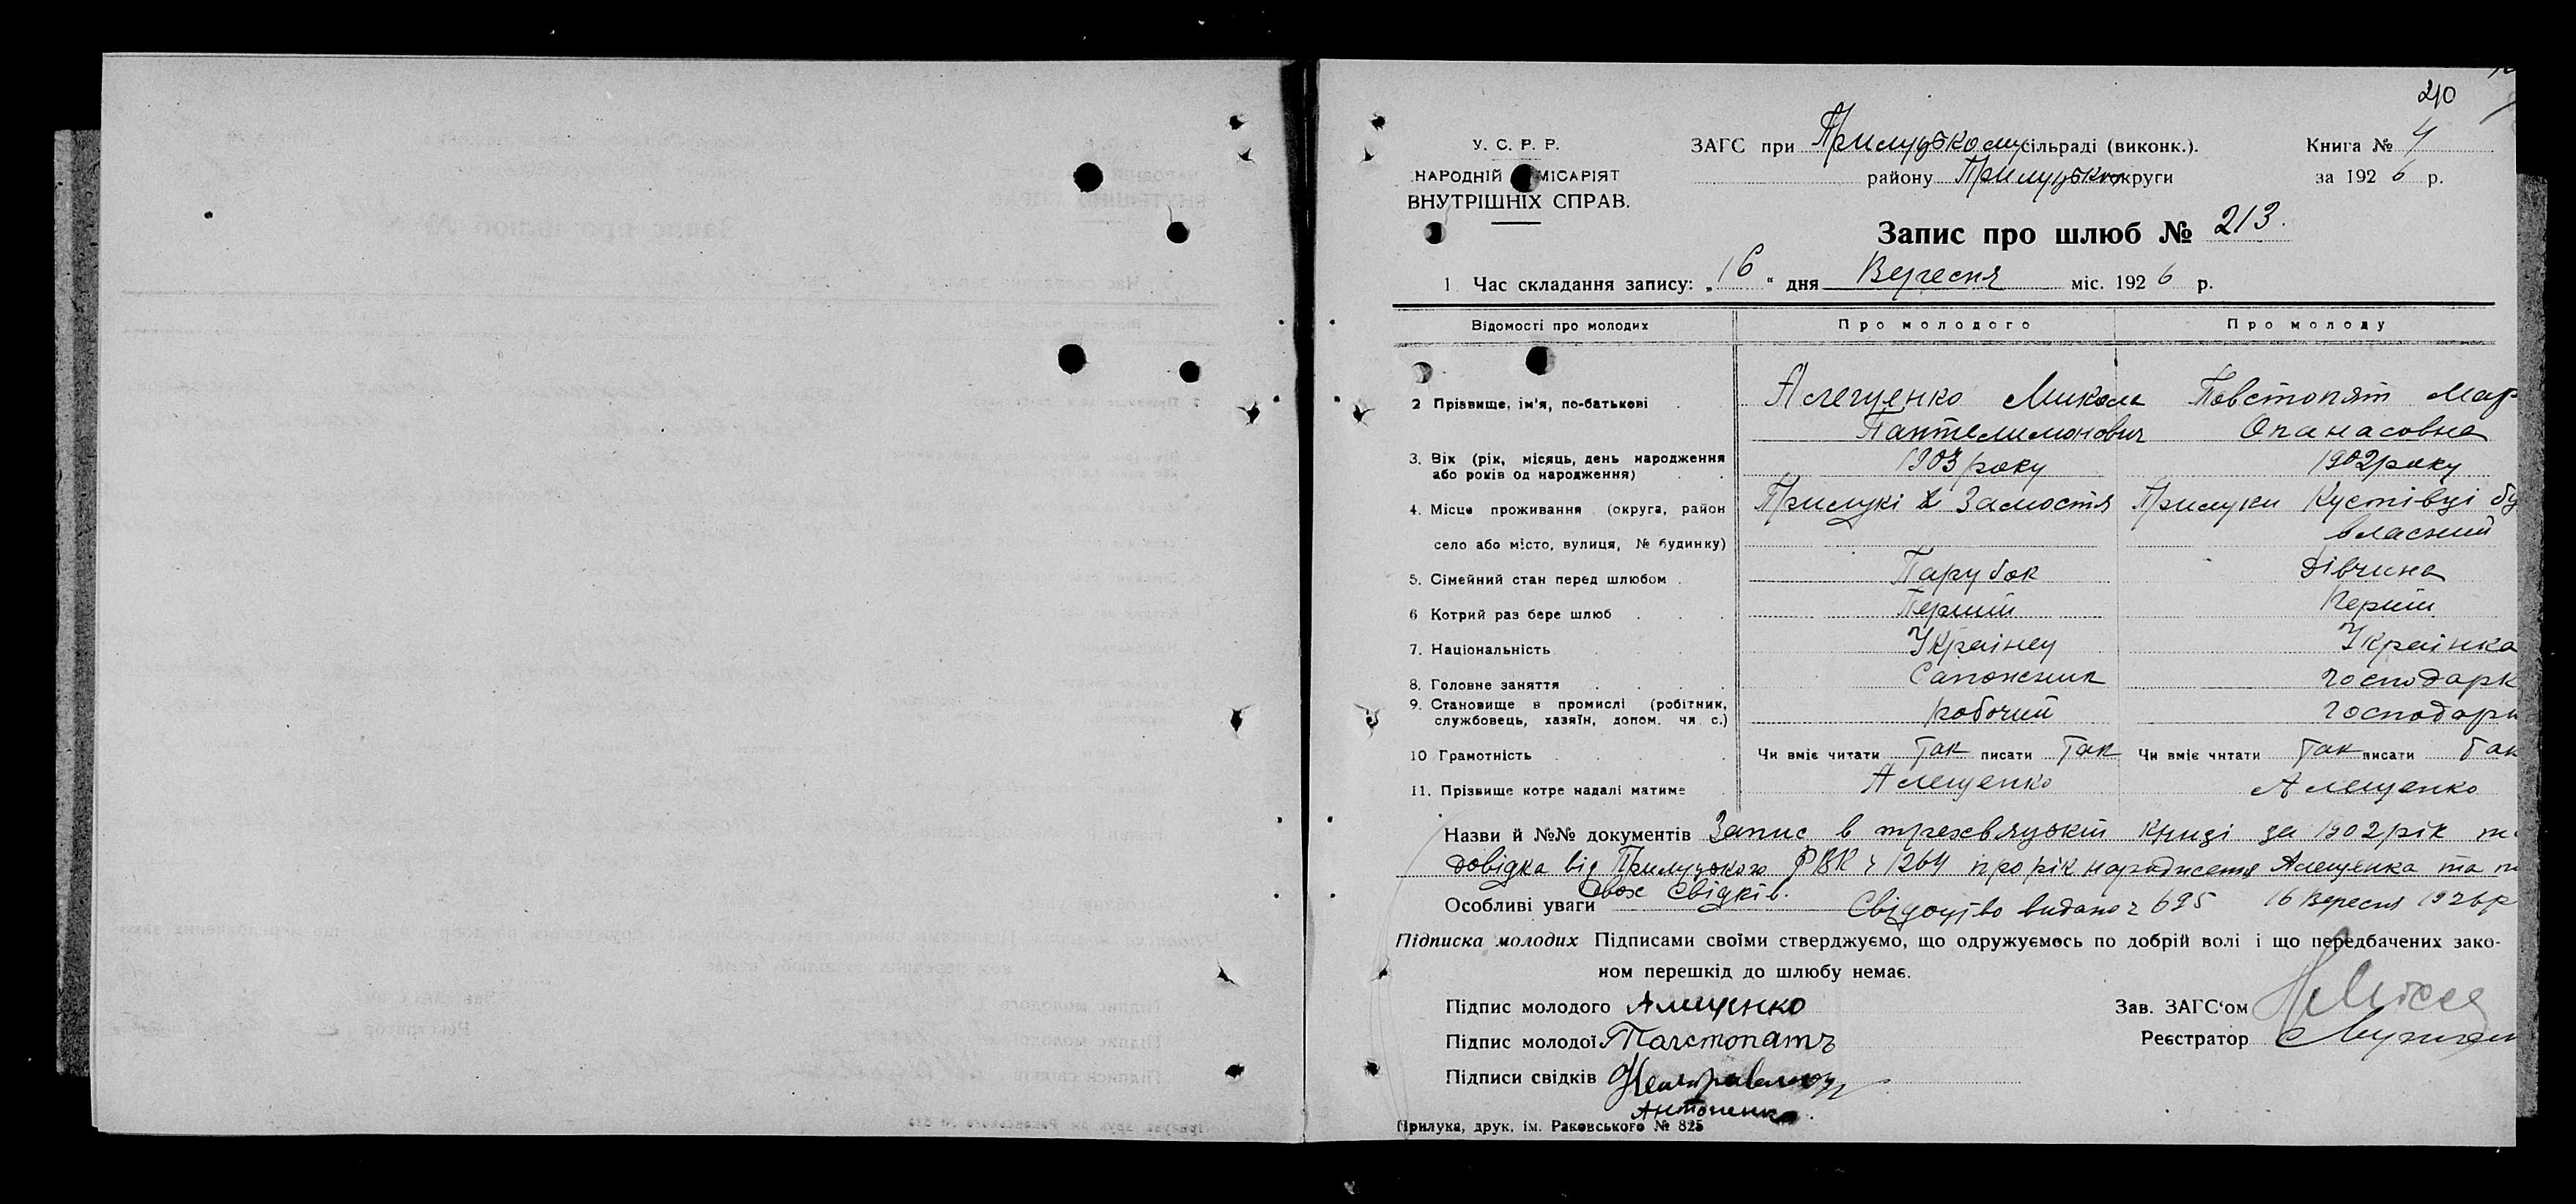 210
У. С. Р. Р.
НАРОДНІЙ МІСАРІЯТ
ВНУТРІШНІХ СПРАВ.
ЗАГС при Прилуцькому сільраді (виконк.).
району Прилуцької округи
Книга № 4
за 1926 р.
Запис про шлюб № 213.
1 Час складання запису: „16“ дня Вересня міс. 1926 р.
Відомості про молодих Про молодого Про молоду
2 Прізвище, ім'я, по-батькові Алещенко Микола Повстопят Мар
Пантелимонович Опанасовна
3. Вік (рік, місяць, день народження
або років од народження) 1903 року 1902 року
4. Місце проживання (округа, район Прилукі Замостя Прилуки Кустівці бу
село або місто, вулиця, № будинку) власний
5. Сімейний стан перед шлюбом Парубок Дівчина
6 Котрий раз бере шлюб Перший Перший
7. Національність Українец Українка
8. Головне заняття Сапожник господарк
9. Становище в промислі (робітник,
службовець, хазяїн, допом. чл. с.) робочий господарк
10 Грамотність Чи вміє читати так писати так Чи вміє читати так писати так
11. Прізвище котре надалі матиме Алещенко Алещенко
Назви й №№ документів Запис в книзі за 1902 рік
довідка від Прилуцького РВК ч 1264 про рік народження Алещенка та
двох свідків.
Особливі уваги Свідоцтво видано ч 695 16 Вересня 1926 р
Підписка молодих Підписами своїми стверджуємо, що одружуємось по добрій волі і що передбачених зако-
ном перешкід до шлюбу немає.
Підпис молодого Алещенко
Підпис молодої
Підписи свідків
Антоненко
Зав. ЗАГС'ом
Реєстратор
Прилука, друк. ім. Раковського № 825